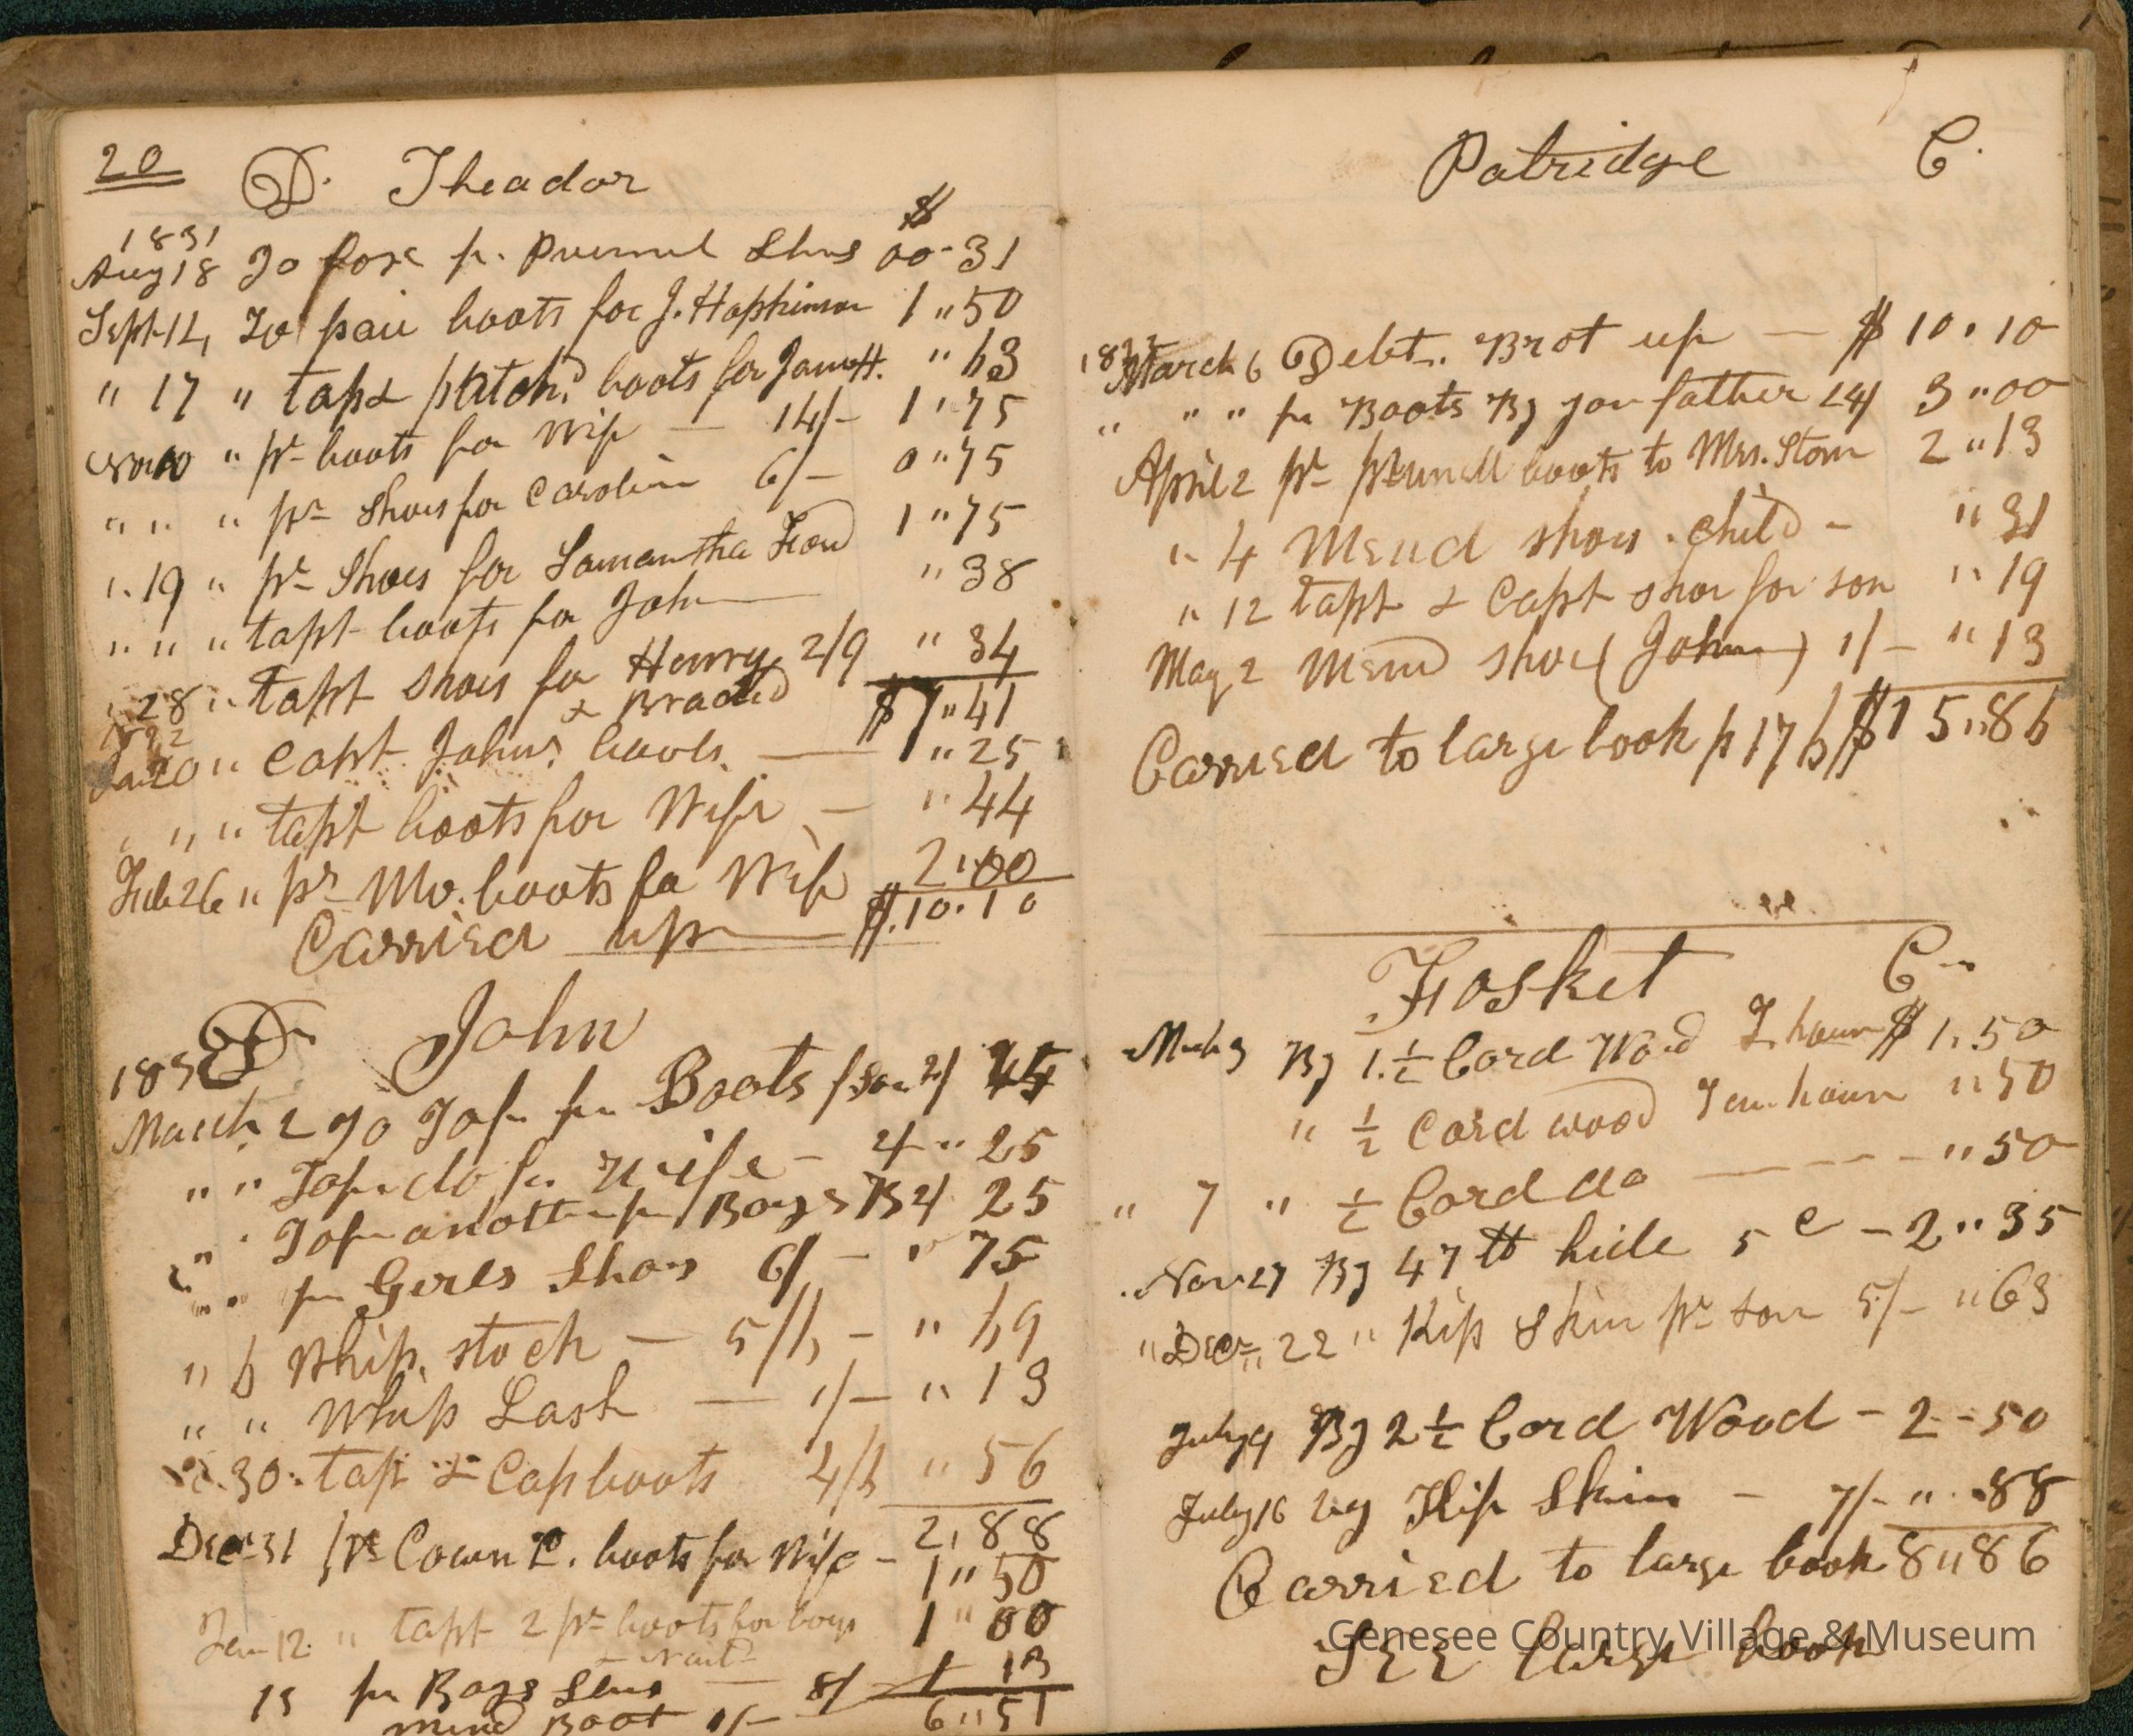 20 D. Theador
$
1831
Aug 18 To foxe pr. Prunel Shus 00-31
Sept 14, To pair boots for J. Hopkinson 1 "50
" 17 " tap & patch.d boots for James H. " 63
Nov 10 " pr boots for Wife — 14/- 1 "75
" " " pr Shoes for Caroline 6/- 0 "75
" 19 " pr Shoes for Samantha Ford 1 "75
" " " tapt boots for John — " 38
" 28 " tapt shoes for Henry 2/9 " 34
& Braced $7 "41
1832
Jan 20 " Capt. Johns boots. — " 25
" " " tapt boots for Wife — " 44
Feb 26 " pr Mo. boots fo Wife 2"00
Carried up — $.10.10
D. John
183
March 2 To Tap pr Boots
" " Tap do for Wife - 2/ " 25
" " Tap another pr Boys 2/ 25
" " pr Gerls Shoes 6/ - " 75
" 6 Whip. stock — 5/6 - " 69
" " Whip Lash — 1/- " 13
" 30 " tap & Cap boots 4/6 " 56
2,88
Decr 31 pr Cown C. boots for Wife - 1 "50
Jan 12 " tapt 2 pr boots for boys 1 "00
15 pr Boys Shus — 8/ 1 13
mend Boot 1/- 6 "51
Patridge C.
1832
March 6 Debt. Brot up — $ 10.10
" " " pr Boots By you father 24/ 3 "00
April 2 pr prunell boots to Mrs. Stone 2 "13
" 4 Mend shoes. child - " 31
" 12 tapt & Capt shoe for son " 19
May 2 Mend shoe (John) 1/- " 13
Carried to large book p 176 $15"86
Fosket C
March 3 By 1.½ Cord Wood $ 1,50
" ½ Cord wood " 50
" 7 " ½ Cord do — " 50
Nov 27 By 47 tt hide 5 c - 2 "35
" Decr 22 " Kip Skin pr son 5/- "63
July 9 By 2½ Cord Wood - 2 - 50
July 16 By Kip Skin - 7/- " 88
Carried to large book 8 "86
See large book
Genesee Country Village & Museum